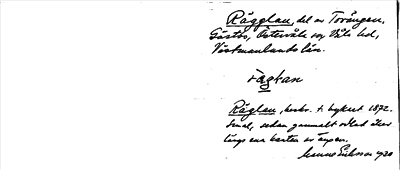 Rägglan, del av Torängen,
Gästbo, Östervåla sn, Våla hd,
Västmanlands län.
räglan
Räglan, beskr. t. hykart 1872.
Smal, sedan gammalt odlad åker
längs ena kanten av ängen.
Manne Eriksson 1930